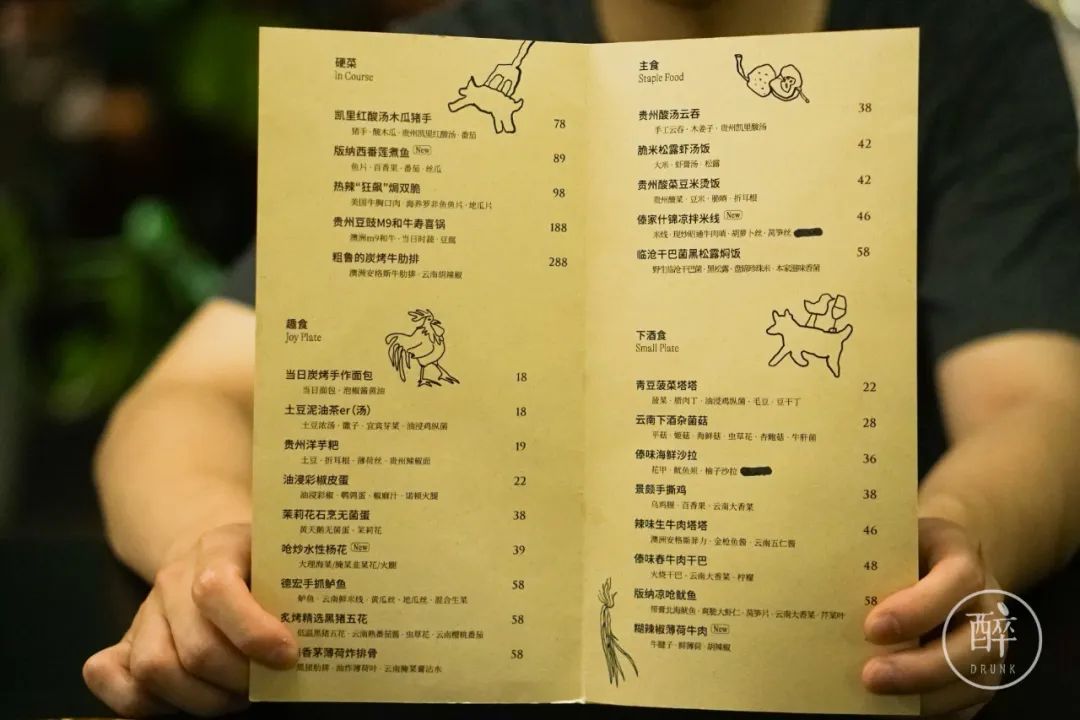 硬菜
In Course
凯里红酸汤木瓜猪手 78
猪手·酸木瓜·贵州凯里红酸汤·番茄
版纳西番莲煮鱼 New 89
鱼片·百香果·番茄·丝瓜
热辣“狂飙”焗双脆 98
美国牛胸口肉·海养罗非鱼鱼片·地瓜片
贵州豆豉M9和牛寿喜锅 188
澳洲m9和牛·当日时蔬·豆腐
粗鲁的炭烤牛肋排 288
澳洲安格斯牛肋排·云南胡辣椒
趣食
Joy Plate
当日炭烤手作面包 18
当日面包·泡椒酱黄油
土豆泥油茶er(汤) 18
土豆浓汤·馓子·宜宾芽菜·油浸鸡枞菌
贵州洋芋粑 19
土豆·折耳根·薄荷丝·贵州辣椒面
油浸彩椒皮蛋 22
油浸彩椒·鹌鹑蛋·椒麻汁·诺顿火腿
茉莉花石烹无菌蛋 38
黄天鹅无菌蛋·茉莉花
呛炒水性杨花 New 39
大理海菜/腌菜韭菜花/火腿
德宏手抓鲈鱼 58
鲈鱼·云南鲜米线·黄瓜丝·地瓜丝·混合生菜
炙烤精选黑猪五花 58
低温黑猪五花·云南熟番茄酱·虫草花·云南樱桃番茄
香茅薄荷炸排骨 58
肋排·油炸薄荷叶·云南腌菜膏沾水
主食
Staple Food
贵州酸汤云吞 38
手工云吞·木姜子·贵州凯里酸汤
脆米松露虾汤饭 42
大米·虾膏汤·松露
贵州酸菜豆米烫饭 42
贵州酸菜·豆米·脆哨·折耳根
傣家什锦凉拌米线 New 46
米线·现炒昭通牛肉哨·胡萝卜丝·莴笋丝
临沧干巴菌黑松露焖饭 58
野生临沧干巴菌·黑松露·盘锦珍珠米·本家滋味香菌
下酒食
Small Plate
青豆菠菜塔塔 22
菠菜·腊肉丁·油浸鸡枞菌·毛豆·豆干丁
云南下酒杂菌菇 28
平菇·姬菇·海鲜菇·虫草花·杏鲍菇·牛肝菌
傣味海鲜沙拉 36
花甲·鱿鱼须·柚子沙拉
景颇手撕鸡 38
乌鸡腿·百香果·云南大香菜
辣味生牛肉塔塔 46
澳洲安格斯菲力·金枪鱼酱·云南五仁酱
傣味舂牛肉干巴 48
火烧干巴·云南大香菜·柠檬
版纳凉呛鱿鱼 58
带膏北海鱿鱼·爽脆大虾仁·莴笋片·云南大香菜·芹菜叶
糊辣椒薄荷牛肉 New
牛腱子·鲜薄荷·胡辣椒
醉
DRUNK